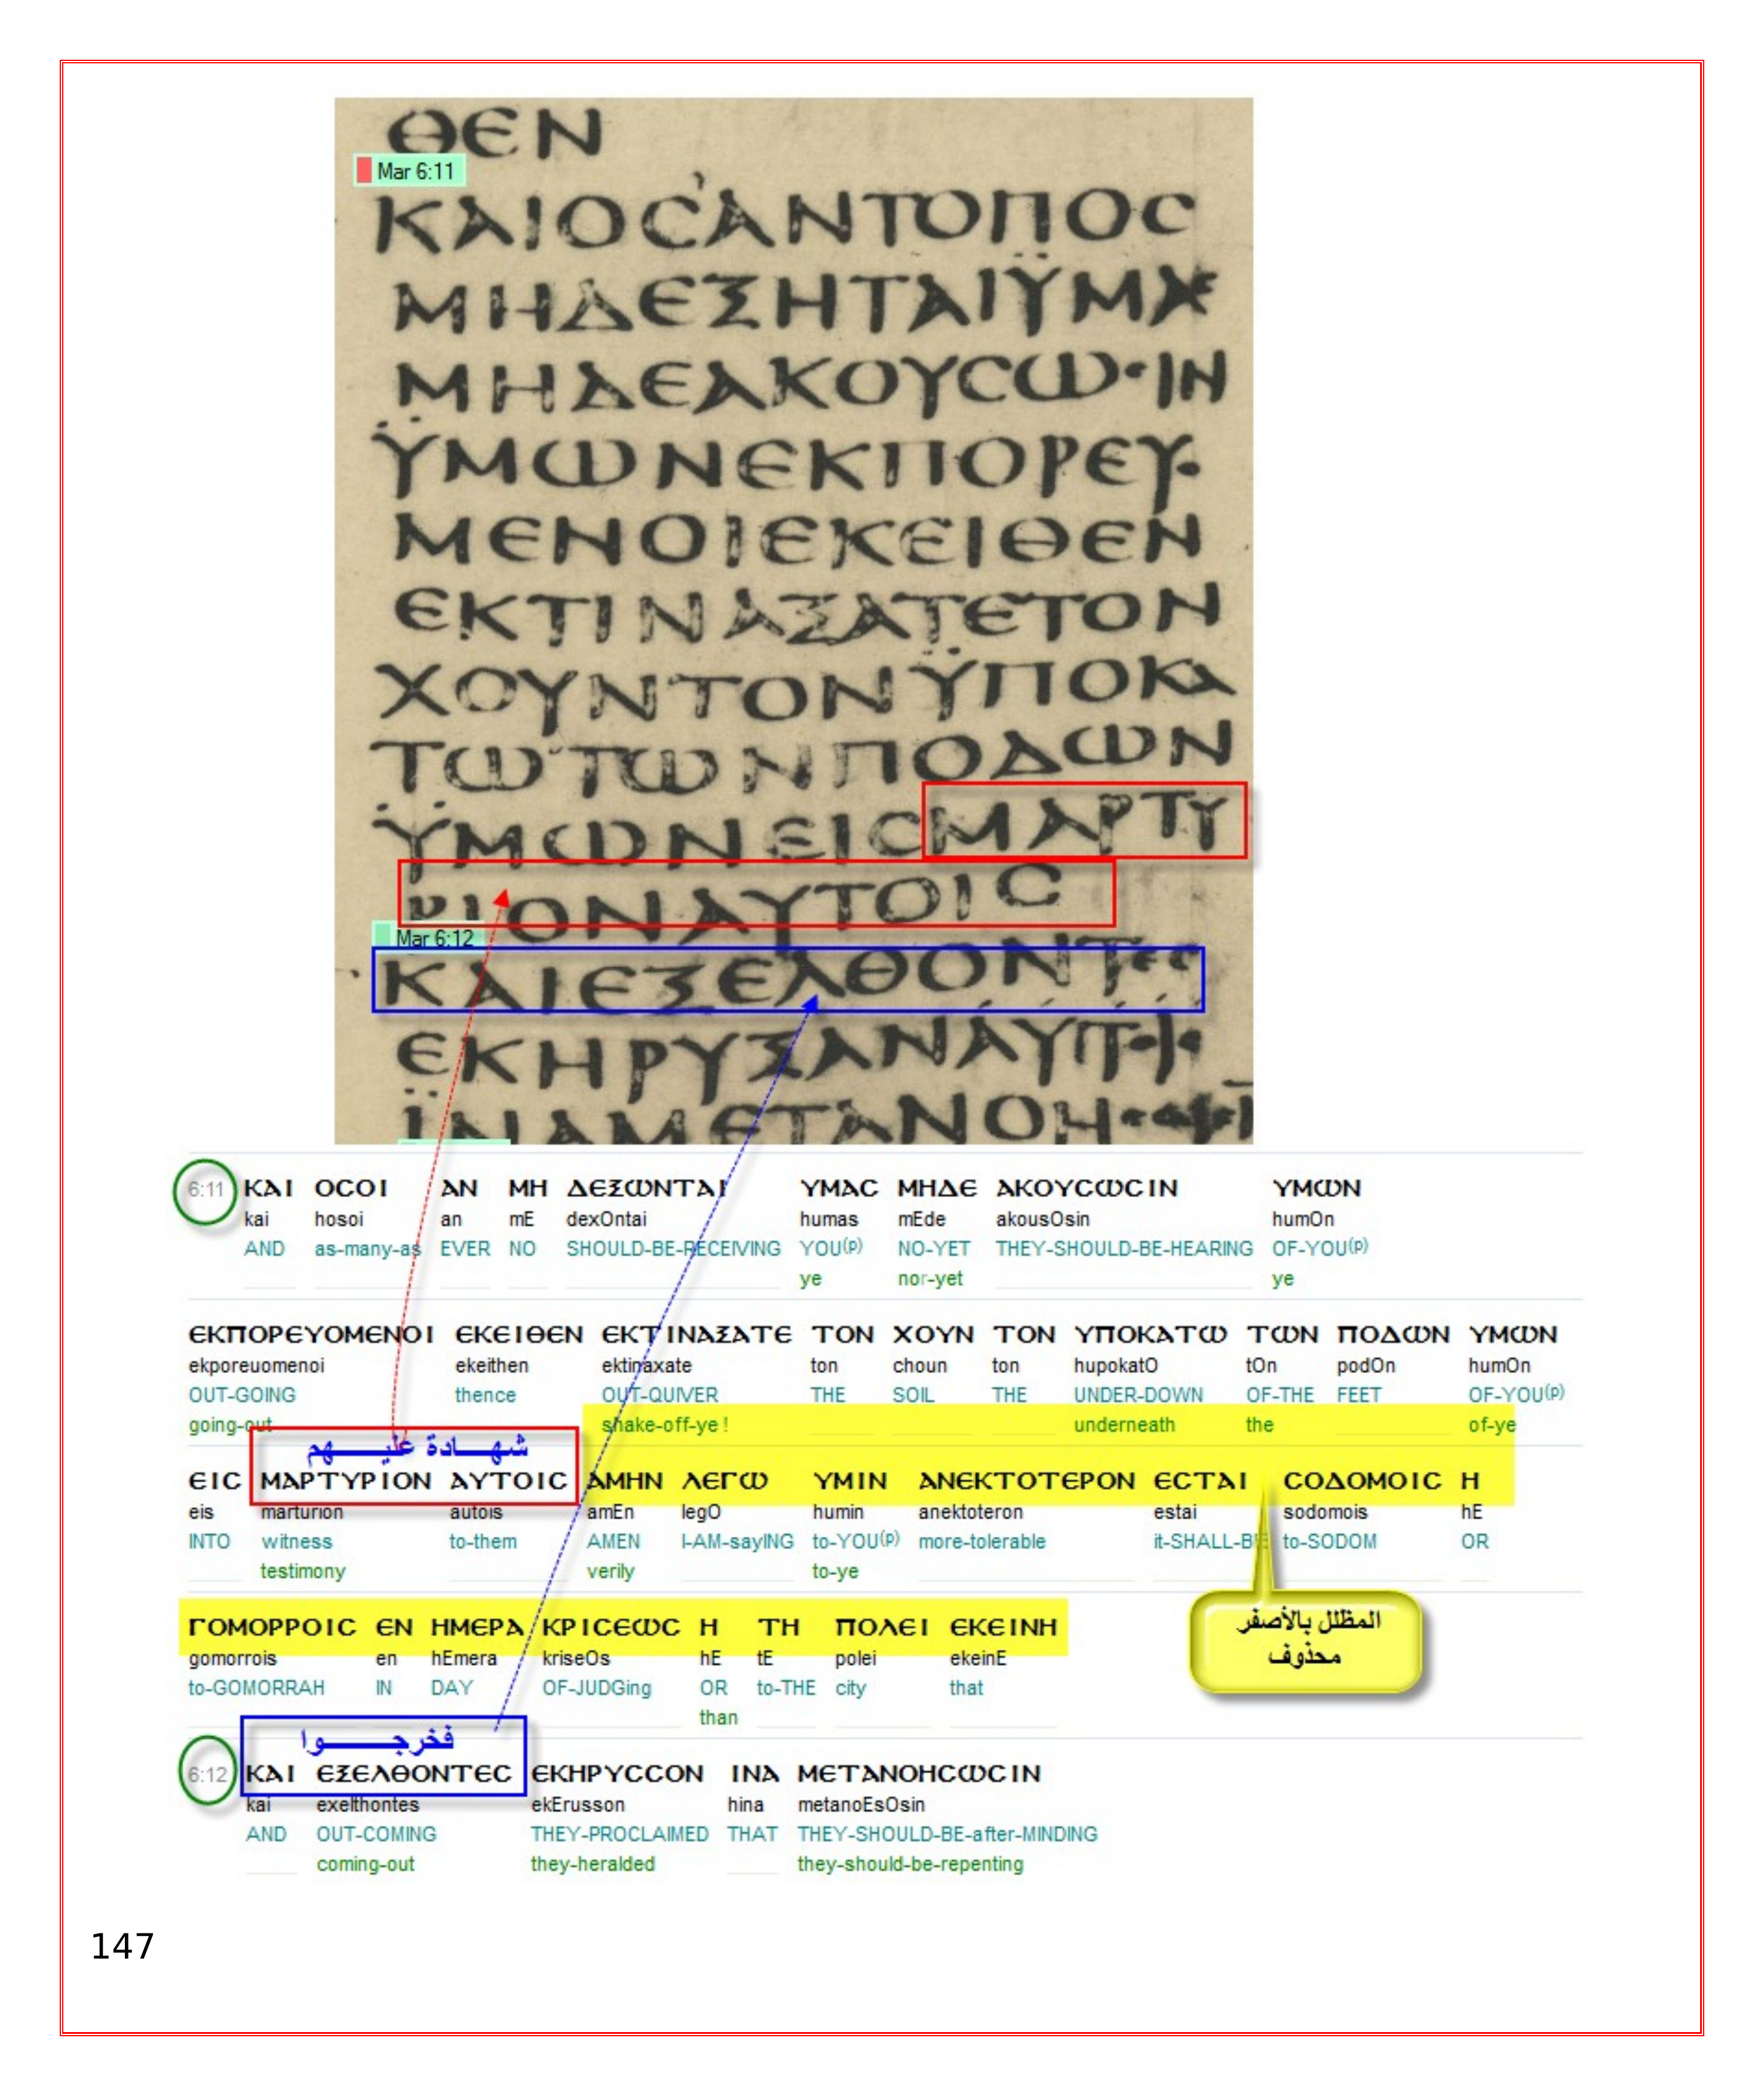 ΘΕΝ
Mar 6:11
ΚΑΙΟϹΑΝΤΟΠΟϹ
ΜΗΔΕΞΗΤΑΙΫΜΑϹ
ΜΗΔΕΑΚΟΥϹΩϹΙΝ
ΫΜΩΝΕΚΠΟΡΕΥ
ΜΕΝΟΙΕΚΕΙΘΕΝ
ΕΚΤΙΝΑΞΑΤΕΤΟΝ
ΧΟΥΝΤΟΝΫΠΟΚΑ
ΤΩΤΩΝΠΟΔΩΝ
ΫΜΩΝΕΙϹΜΑΡΤΥ
ΡΙΟΝΑΥΤΟΙϹ
Mar 6:12
ΚΑΙΕΞΕΛΘΟΝΤΕϹ
ΕΚΗΡΥΞΑΝ
ΪΝΑΜΕΤΑΝΟΗ
6:11 ΚΑΙ ΟϹΟΙ ΑΝ ΜΗ ΔΕΞΩΝΤΑΙ ΥΜΑϹ ΜΗΔΕ ΑΚΟΥϹΩϹΙΝ ΥΜΩΝ
kai hosoi an mE dexOntai humas mEde akousOsin humOn
AND as-many-as EVER NO SHOULD-BE-RECEIVING YOU(p) NO-YET THEY-SHOULD-BE-HEARING OF-YOU(p)
ye nor-yet ye
ΕΚΠΟΡΕΥΟΜΕΝΟΙ ΕΚΕΙΘΕΝ ΕΚΤΙΝΑΞΑΤΕ ΤΟΝ ΧΟΥΝ ΤΟΝ ΥΠΟΚΑΤΩ ΤΩΝ ΠΟΔΩΝ ΥΜΩΝ
ekporeuomenoi ekeithen ektinaxate ton choun ton hupokatO tOn podOn humOn
OUT-GOING thence OUT-QUIVER THE SOIL THE UNDER-DOWN OF-THE FEET OF-YOU(p)
going-out shake-off-ye ! underneath the of-ye
شهــادة عليــــهم
ΕΙϹ ΜΑΡΤΥΡΙΟΝ ΑΥΤΟΙϹ ΑΜΗΝ ΛΕΓΩ ΥΜΙΝ ΑΝΕΚΤΟΤΕΡΟΝ ΕϹΤΑΙ ϹΟΔΟΜΟΙϹ Η
eis marturion autois amEn legO humin anektoteron estai sodomois hE
INTO witness to-them AMEN I-AM-sayING to-YOU(p) more-tolerable it-SHALL-BE to-SODOM OR
testimony verily to-ye
ΓΟΜΟΡΡΟΙϹ ΕΝ ΗΜΕΡΑ ΚΡΙϹΕΩϹ Η ΤΗ ΠΟΛΕΙ ΕΚΕΙΝΗ
gomorrois en hEmera kriseOs hE tE polei ekeinE
to-GOMORRAH IN DAY OF-JUDGing OR to-THE city that
than
المظلل بالأصفر
محذوف
فخرجـــــــوا
6:12 ΚΑΙ ΕΞΕΛΘΟΝΤΕϹ ΕΚΗΡΥϹϹΟΝ ΙΝΑ ΜΕΤΑΝΟΗϹΩϹΙΝ
kai exelthontes ekErusson hina metanoEsOsin
AND OUT-COMING THEY-PROCLAIMED THAT THEY-SHOULD-BE-after-MINDING
coming-out they-heralded they-should-be-repenting
147